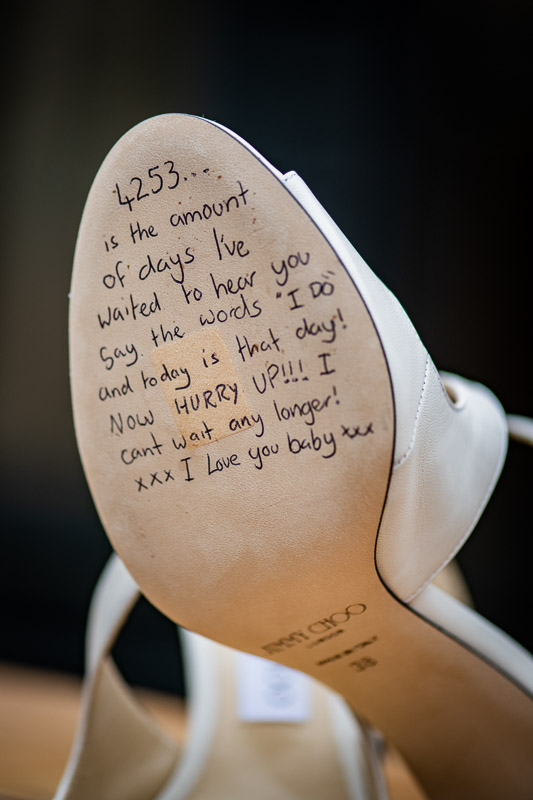 4253...
is the amount
of days I've
waited to hear you
say the words "I DO"
and today is that day!
Now HURRY UP!!! I
cant wait any longer!
xxx I Love you baby xxx
JIMMY CHOO
LONDON
MADE IN ITALY
38